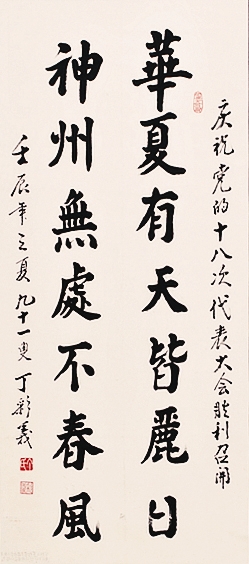 庆祝党的十八次代表大会胜利召開
華夏有天皆麗日
神州無處不春風
壬辰年之夏九十一叟丁彩義